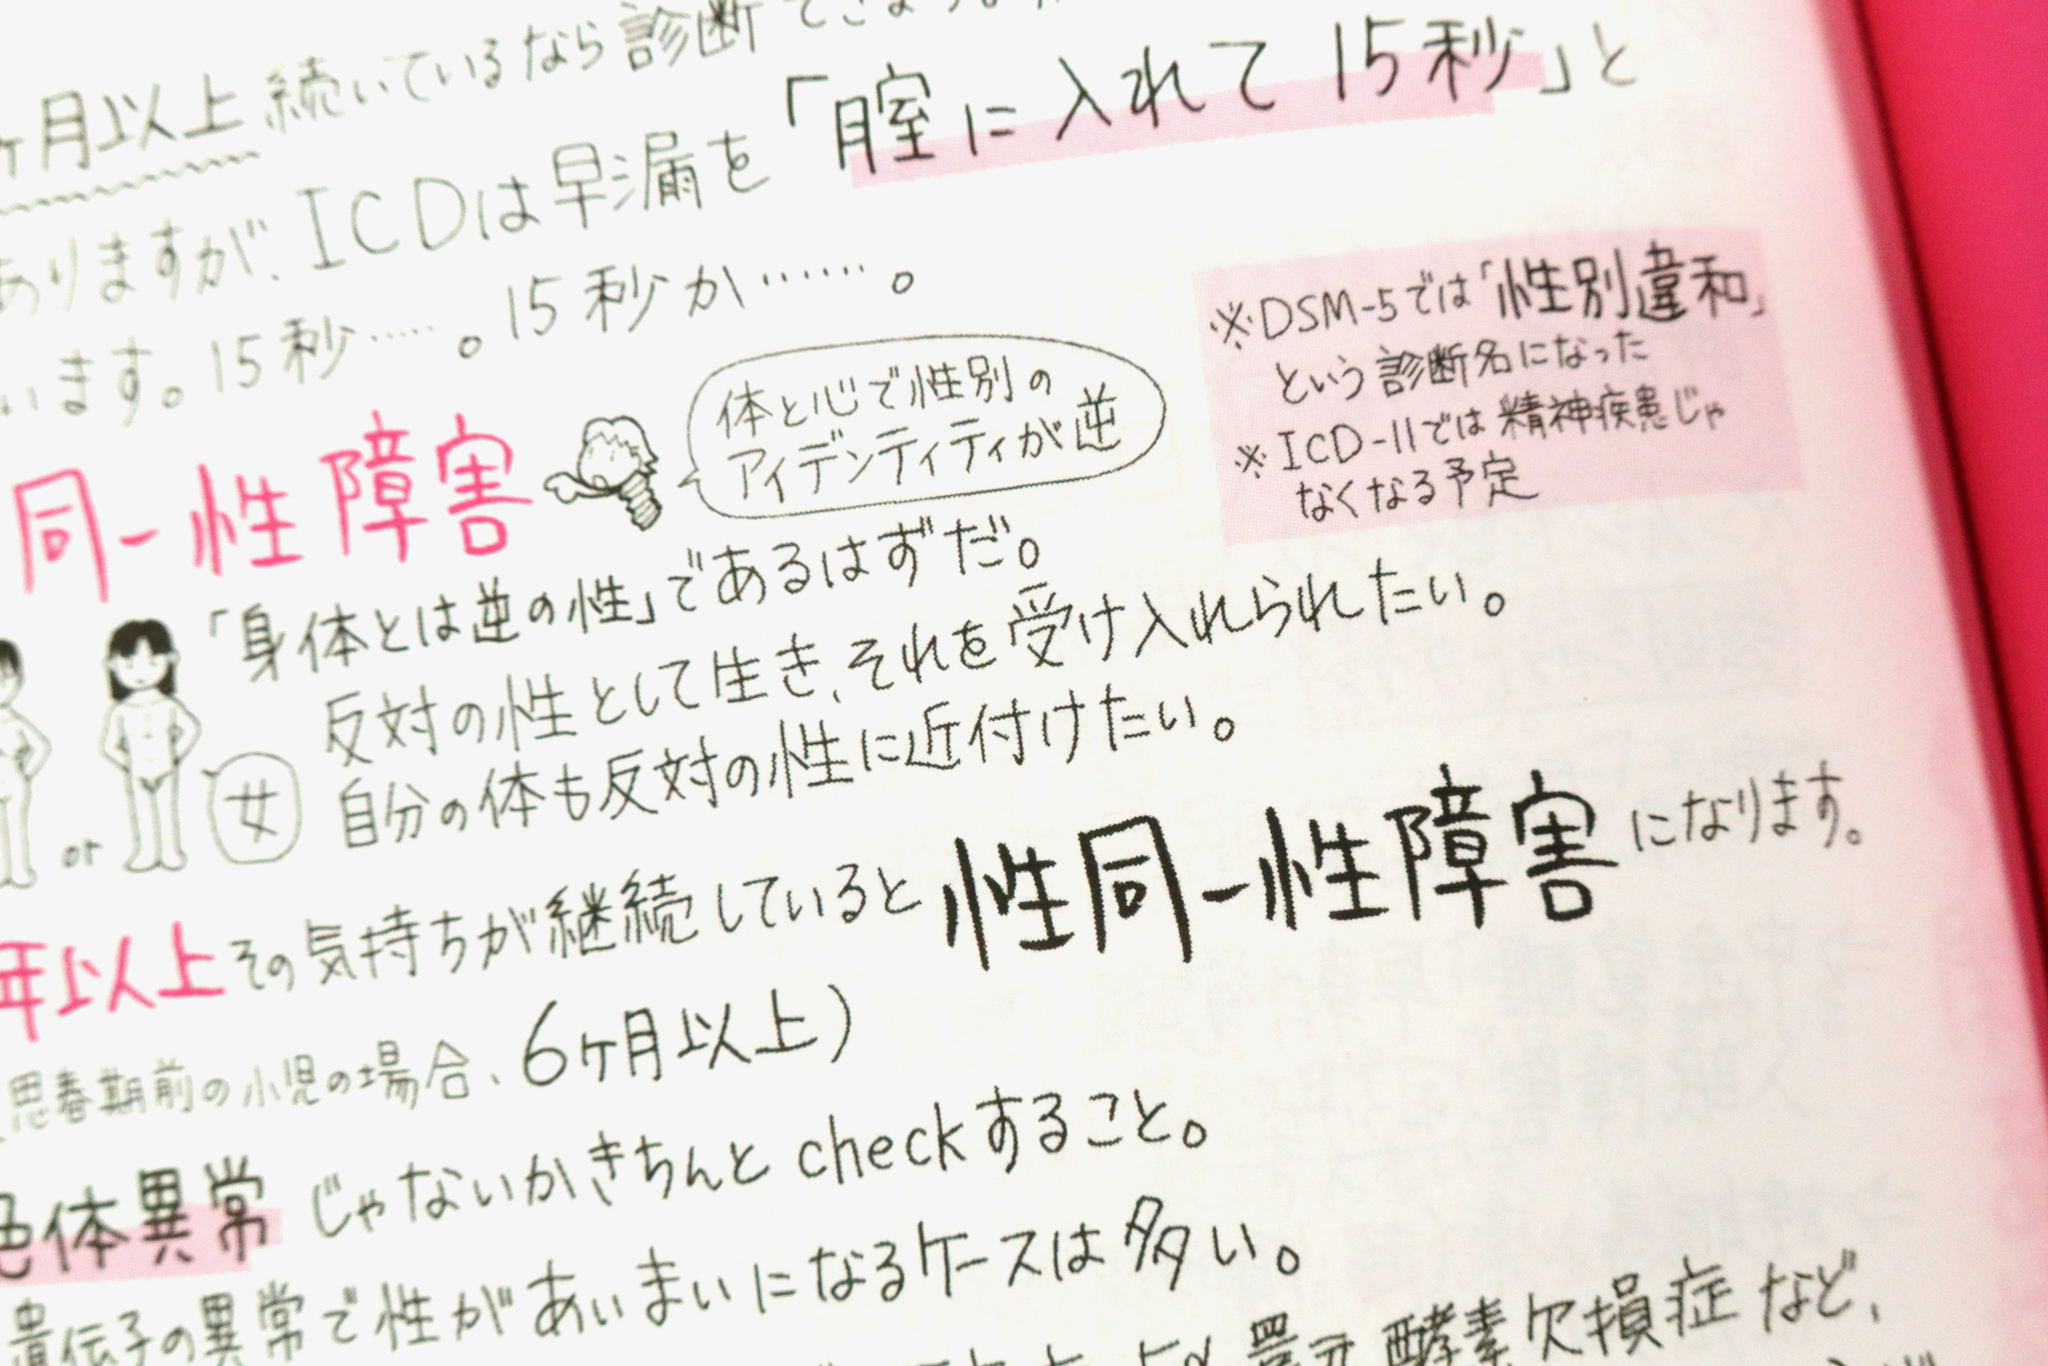 ヶ月以上続いているなら診断
ありますが、ICDは早漏を「膣に入れて15秒」と
います。15秒……。15秒か……。
※DSM-5では「性別違和」
という診断名になった
※ICD-11では精神疾患じゃ
なくなる予定
同一性障害
体と心で性別の
アイデンティティが逆
「身体とは逆の性」であるはずだ。
反対の性として生き、それを受け入れられたい。
自分の体も反対の性に近付けたい。
or
女
年以上その気持ちが継続していると性同一性障害になります。
思春期前の小児の場合、6ヶ月以上)
色体異常じゃないかきちんとcheckすること。
遺伝子の異常で性があいまいになるケースは多い。
還元酵素欠損症など、